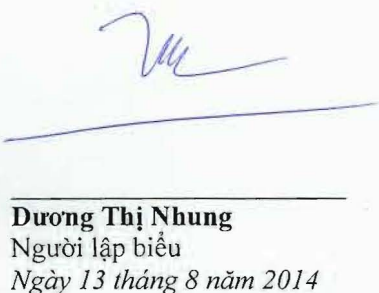 Dương Thị Nhung
Người lập biểu
Ngày 13 tháng 8 năm 2014